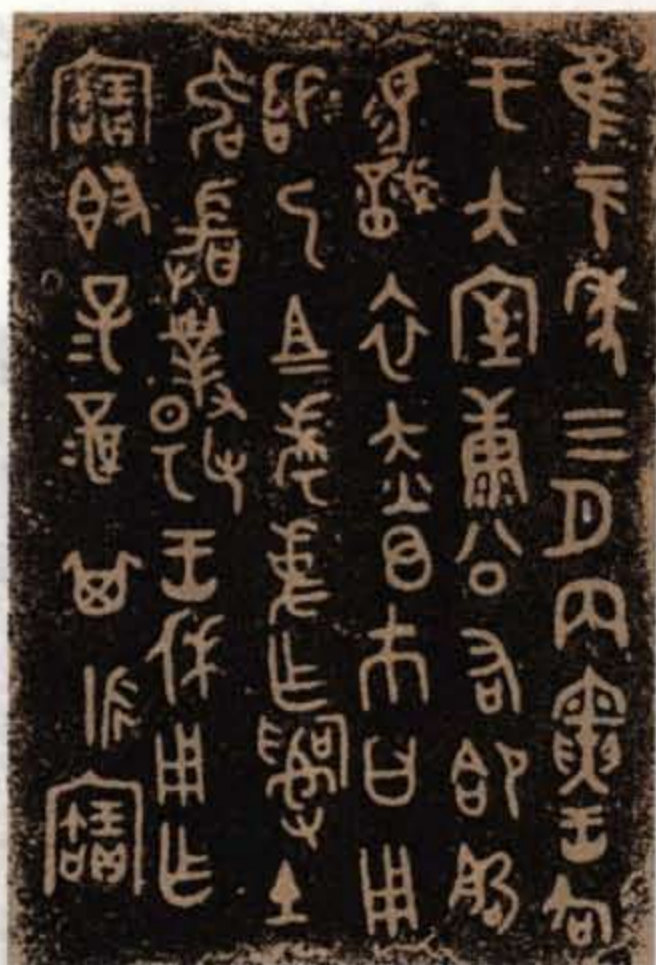 隹元年三月丙寅王各
于大室康公右郃
易戠衣赤⊙巿曰用
乃且考事乍𤔲土
敢對揚王休用乍
寶𣪘子=孫=其永寶